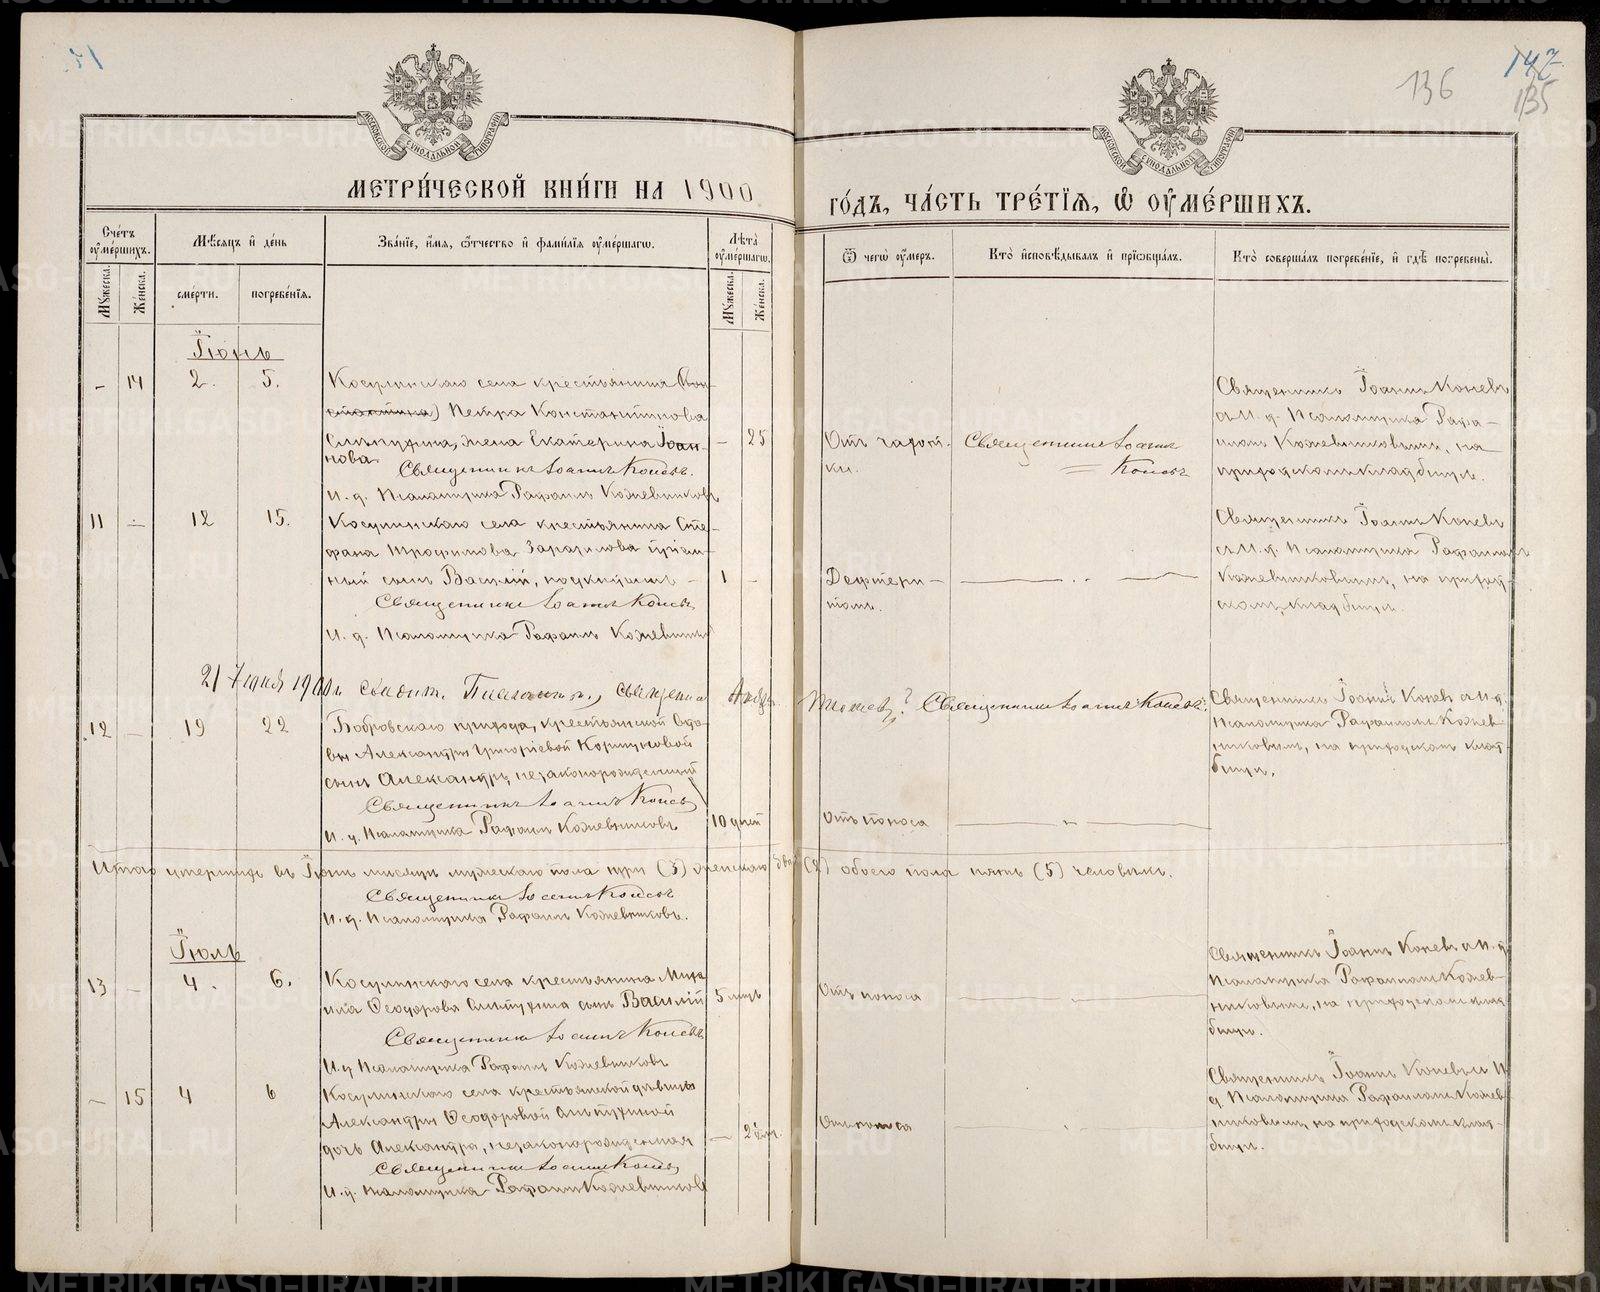 136
147
135
МОСКОВСКОЙ СѴНОДАЛЬНОЙ ТИПОГРАФІИ
МОСКОВСКОЙ СѴНОДАЛЬНОЙ ТИПОГРАФІИ
МЕТРИ́ЧЕСКОЙ КНИ́ГИ НА 1900
ГО́ДЪ, ЧА́СТЬ ТРЕ́ТІѦ, Ѡ҆ ОУ҆МЕ́РШИХЪ.
Сче́тъ оу҆ме́ршихъ.
Мѣ́сяцъ и҆ де́нь
Зва́нїе, и҆́мѧ, ѻ҆́тчество и҆ фами́лїѧ оу҆ме́ршагѡ.
Лѣ́та оу҆ме́ршагѡ.
Ѿ чегѡ̀ оу҆́меръ.
Кто̀ и҆сповѣ́дывалъ и҆ прїѡбща́лъ.
Кто̀ соверша́лъ погребе́нїе, и҆ гдѣ̀ погребены̀.
Му́жеска.
Же́нска.
сме́рти.
погребе́нїѧ.
Му́жеска.
Же́нска.
Іюнь
– 14 2. 5.
Косулинскаго села крестьянина
Петра Константинова
жена Екатерина Іоан-
нова
– 25
Священникъ Іоаннъ Коневъ.
И. д. Псаломщика Рафаилъ Кожевниковъ
Отъ чахот-
ки.
Священникъ Іоаннъ
Коневъ
Священникъ Іоаннъ Коневъ
съ И. д. Псаломщика Рафа-
иломъ Кожевниковымъ, на
приходскомъ кладбищѣ.
11 – 12 15.
Косулинскаго села крестьянина Сте-
фана Трофимова пріем-
ный сынъ Василій, подкидышъ
1 –
Священникъ Іоаннъ Коневъ
И. д. Псаломщика Рафаилъ Кожевниковъ
Дифтери-
томъ.
Священникъ Іоаннъ Коневъ
съ И. д. Псаломщика Рафаиломъ
Кожевниковымъ, на приход-
скомъ кладбищѣ.
21 Іюня 1900 г.
Священникъ Іоаннъ Коневъ.
12 – 19 22
Бобровскаго прихода, крестьянской вдо-
вы Александры Григоріевой Коршуновой
сынъ Александръ, незаконорожденный
Священникъ Іоаннъ Коневъ
И. д. Псаломщика Рафаилъ Кожевниковъ
10 дней
Отъ поноса
Священникъ Іоаннъ Коневъ съ И. д.
Псаломщика Рафаиломъ Кожев-
никовымъ, на приходскомъ клад-
бищѣ.
Итого умершихъ въ Іюнѣ мѣсяцѣ мужескаго пола три (3) женскаго два (2) обоего пола пять (5) человѣкъ.
Священникъ Іоаннъ Коневъ
И. д. Псаломщика Рафаилъ Кожевниковъ.
Іюль
13 – 4. 6.
Косулинскаго села крестьянина Миха-
ила Ѳеодорова сынъ Василій
5 мѣц.
Священникъ Іоаннъ Коневъ
И. д. Псаломщика Рафаилъ Кожевниковъ
Отъ поноса
Священникъ Іоаннъ Коневъ съ И. д.
Псаломщика Рафаиломъ Кожев-
никовымъ, на приходскомъ клад-
бищѣ.
– 15 4 6
Косулинскаго села крестьянской дѣвицы
Александры Ѳеодоровой
дочь Александра, незаконорожденная
–
Священникъ Іоаннъ Коневъ
И. д. Псаломщика Рафаилъ Кожевниковъ
Отъ поноса
Священникъ Іоаннъ Коневъ съ И.
д. Псаломщика Рафаиломъ Кожев-
никовымъ, на приходскомъ клад-
бищѣ.
METRIKI.GASO-URAL.RU